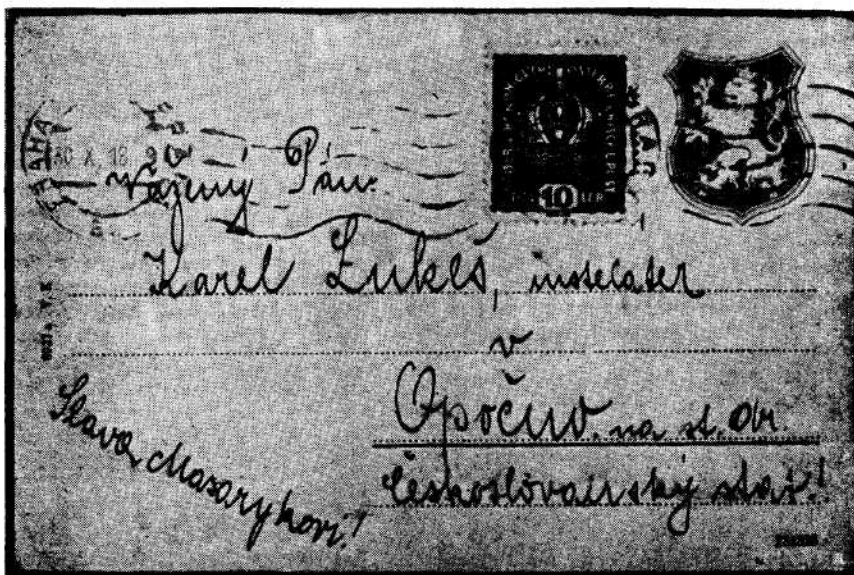 PRAHA
X. 18
10
Vážený Pán.
Karel Lukeš, instalatér
v
Opočno. na st. dr.
Českoslovanský stát!
Sláva Masarykovi!